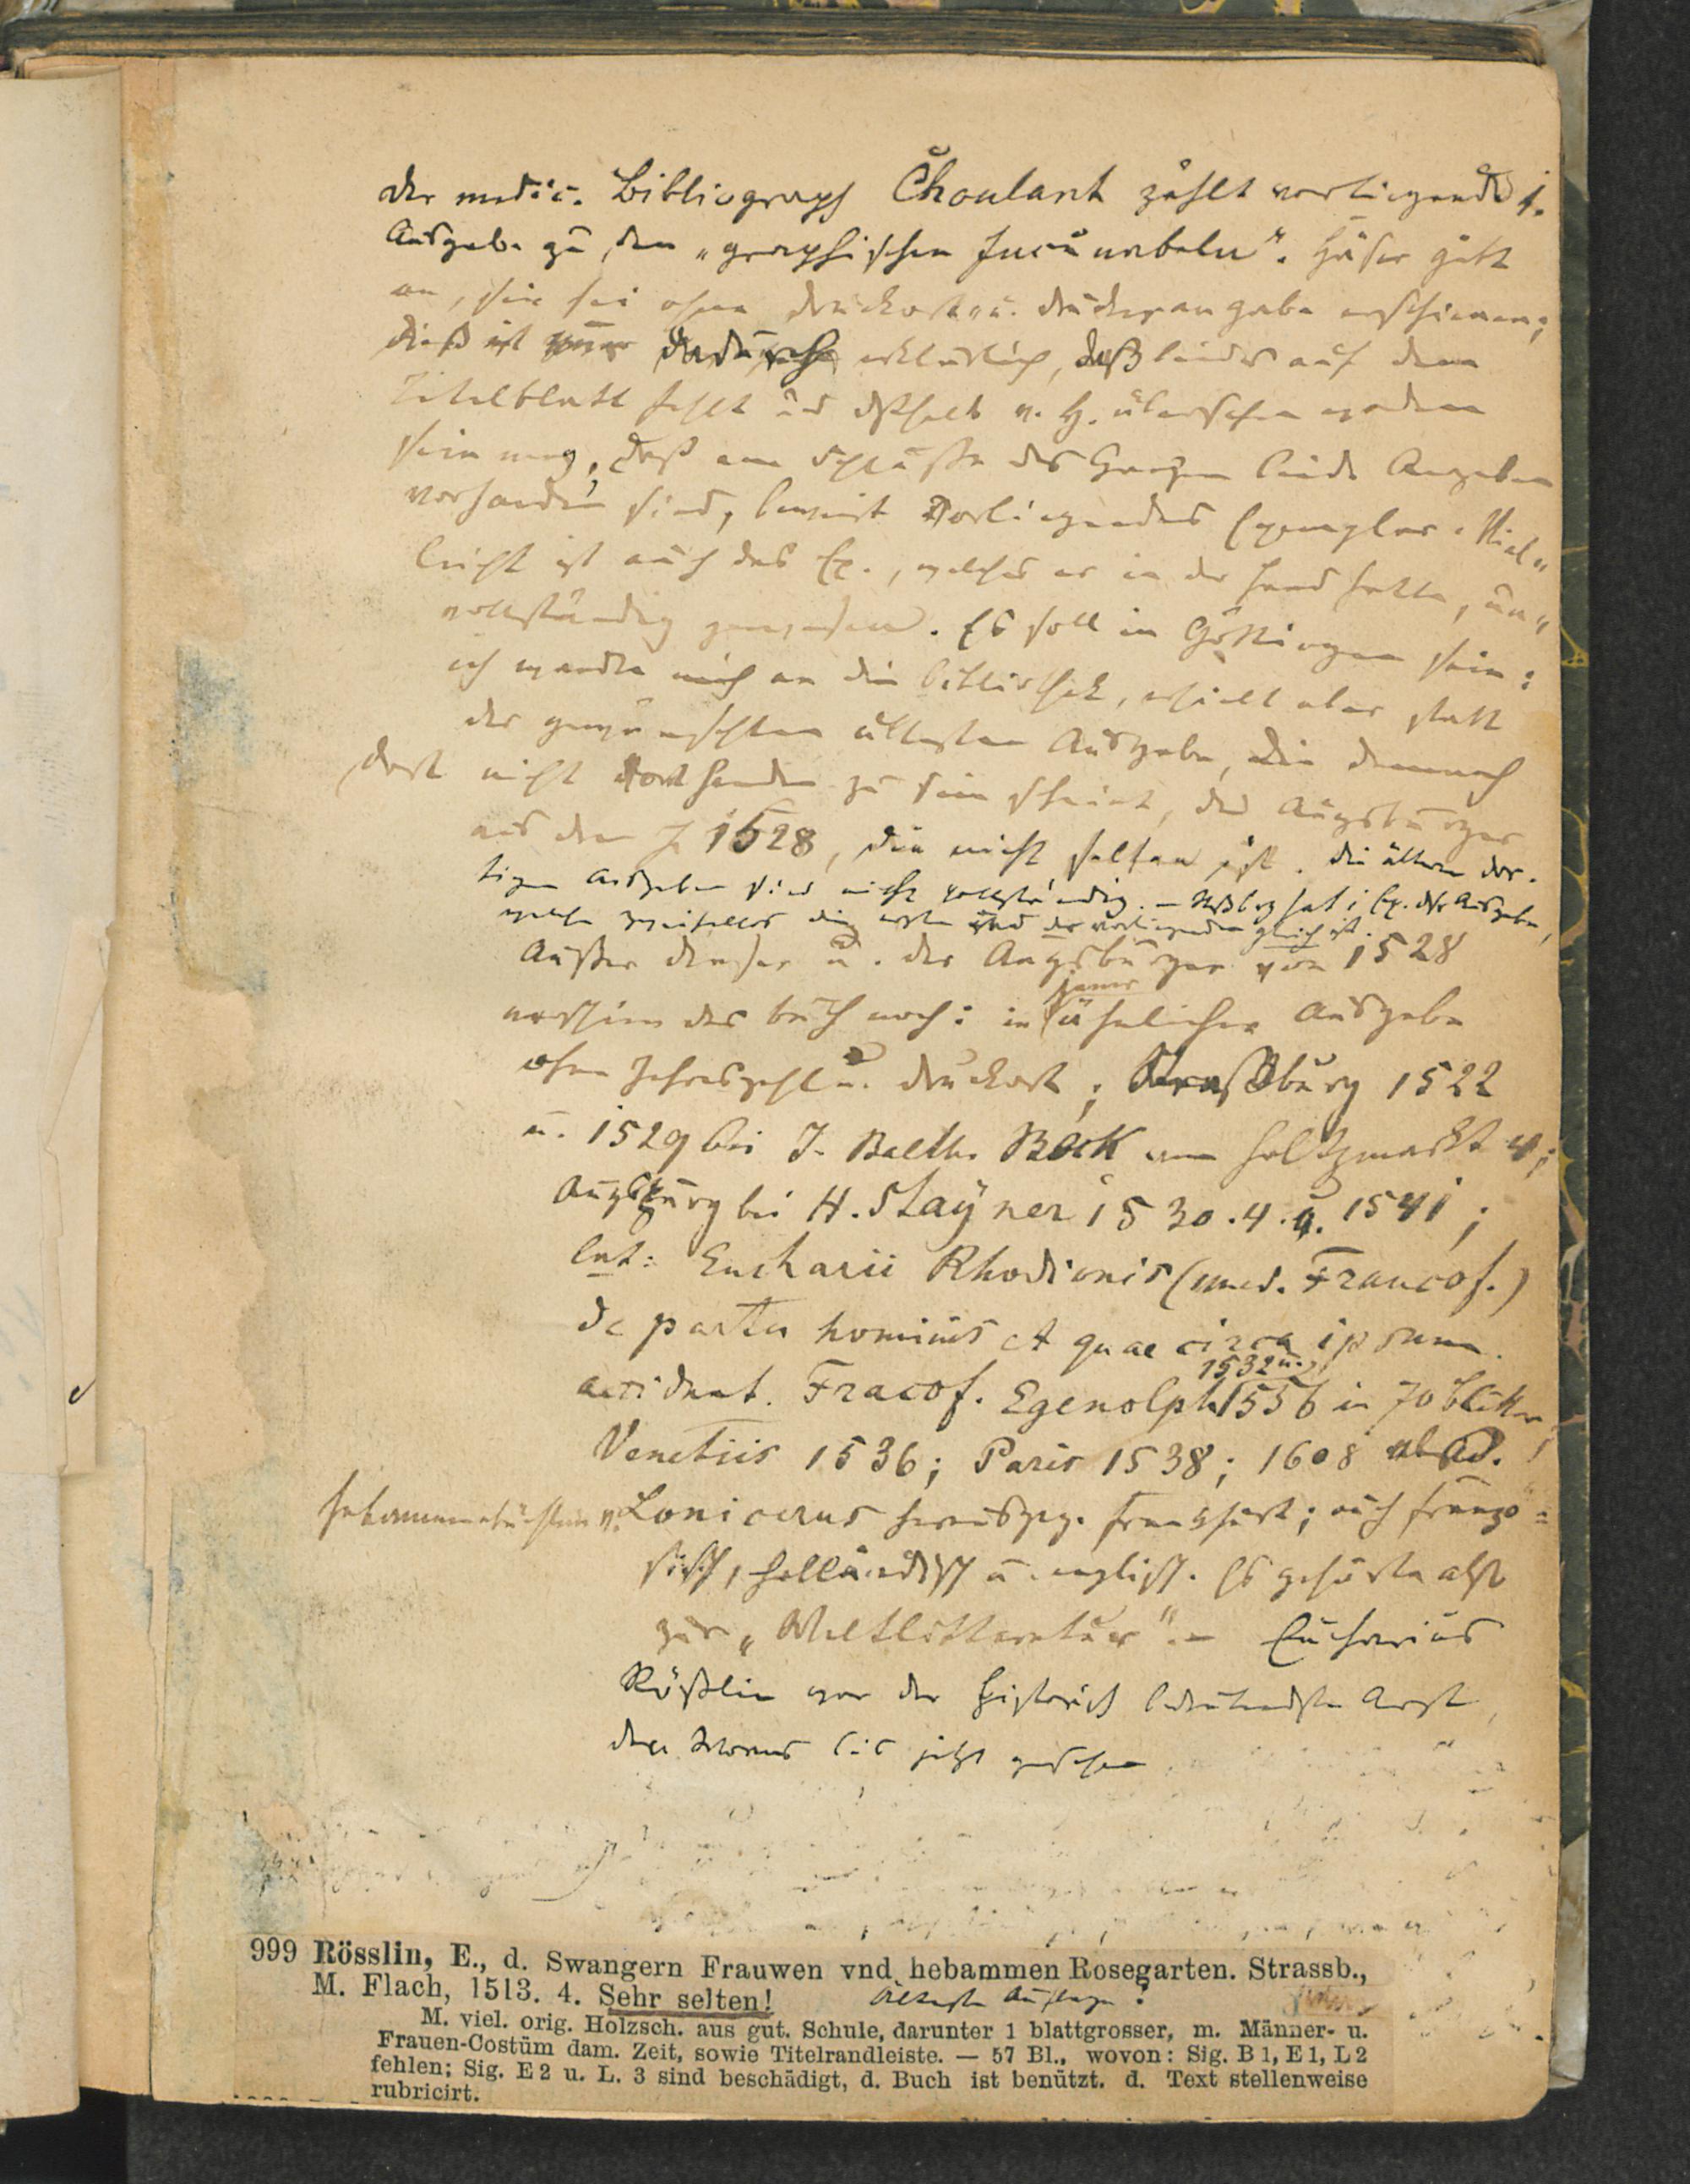 Der medic. Bibliograph Choulant zählt vorliegende
Ausgabe zu den „graphischen Incunabeln“. Häser gibt
an, sie sei ohne Druckort u. Druckerangabe erschienen;
dieß ist nur dadurch erklärlich, daß beides auf dem
Titelblatt fehlt und deßhalb v. H. übersehen worden
sein mag. Daß am Schluße des Ganzen beide Angaben
vorhanden sind, beweist vorliegendes Exemplar. Viel„
leicht ist auch das Ex., welches er in der Hand hatte, un„
vollständig gewesen. Es soll in Göttingen sein:
ich wandte mich an die Bibliothek, erhielt aber statt
der gewünschten ältesten Ausgabe, die demnach
dort nicht vorhanden zu sein scheint, die Augsburger
aus dem J. 1528, die nicht selten ist. Die ältern dor-
tigen Ausgaben sind nicht vollständig. –
welche die erste und der vorliegenden gleich ist.
Außer dieser u. der Augsburger von 1528
erschien das Buch noch: in jener ähnlicher Ausgabe
ohne Jahreszahl u. Druckort; Straßburg 1522
u. 1529 bei J. Balth. Beck am Holtzmarkt 4;
Augsburg bei H. Stayner 1530. 4. u. 1541;
lat: Eucharii Rhodionis (med. Francof.)
de partu hominis et quae circa ipsum
accidunt. Fracof. Egenolph 1532 u. 1556 in 70 Blätter
Venetiis 1536; Paris 1538; 1608 als
Hebammenbüchlein v. Lonicerus herausgeg. Frankfurt; auch franzö=
sisch, holländisch u. englisch. Es gehörte also
zur „Weltlitteratur“. – Eucharius
Rößlin war der historisch bedeutendste Arzt,
den Worms bis jetzt gesehen
999 Rösslin, E., d. Swangern Frauwen vnd hebammen Rosegarten. Strassb.,
M. Flach, 1513. 4. Sehr selten! Älteste Auflage!
M. viel. orig. Holzsch. aus gut. Schule, darunter 1 blattgrosser, m. Männer- u.
Frauen-Costüm dam. Zeit, sowie Titelrandleiste. — 57 Bl., wovon: Sig. B 1, E 1, L 2
fehlen; Sig. E 2 u. L. 3 sind beschädigt, d. Buch ist benützt. d. Text stellenweise
rubricirt.